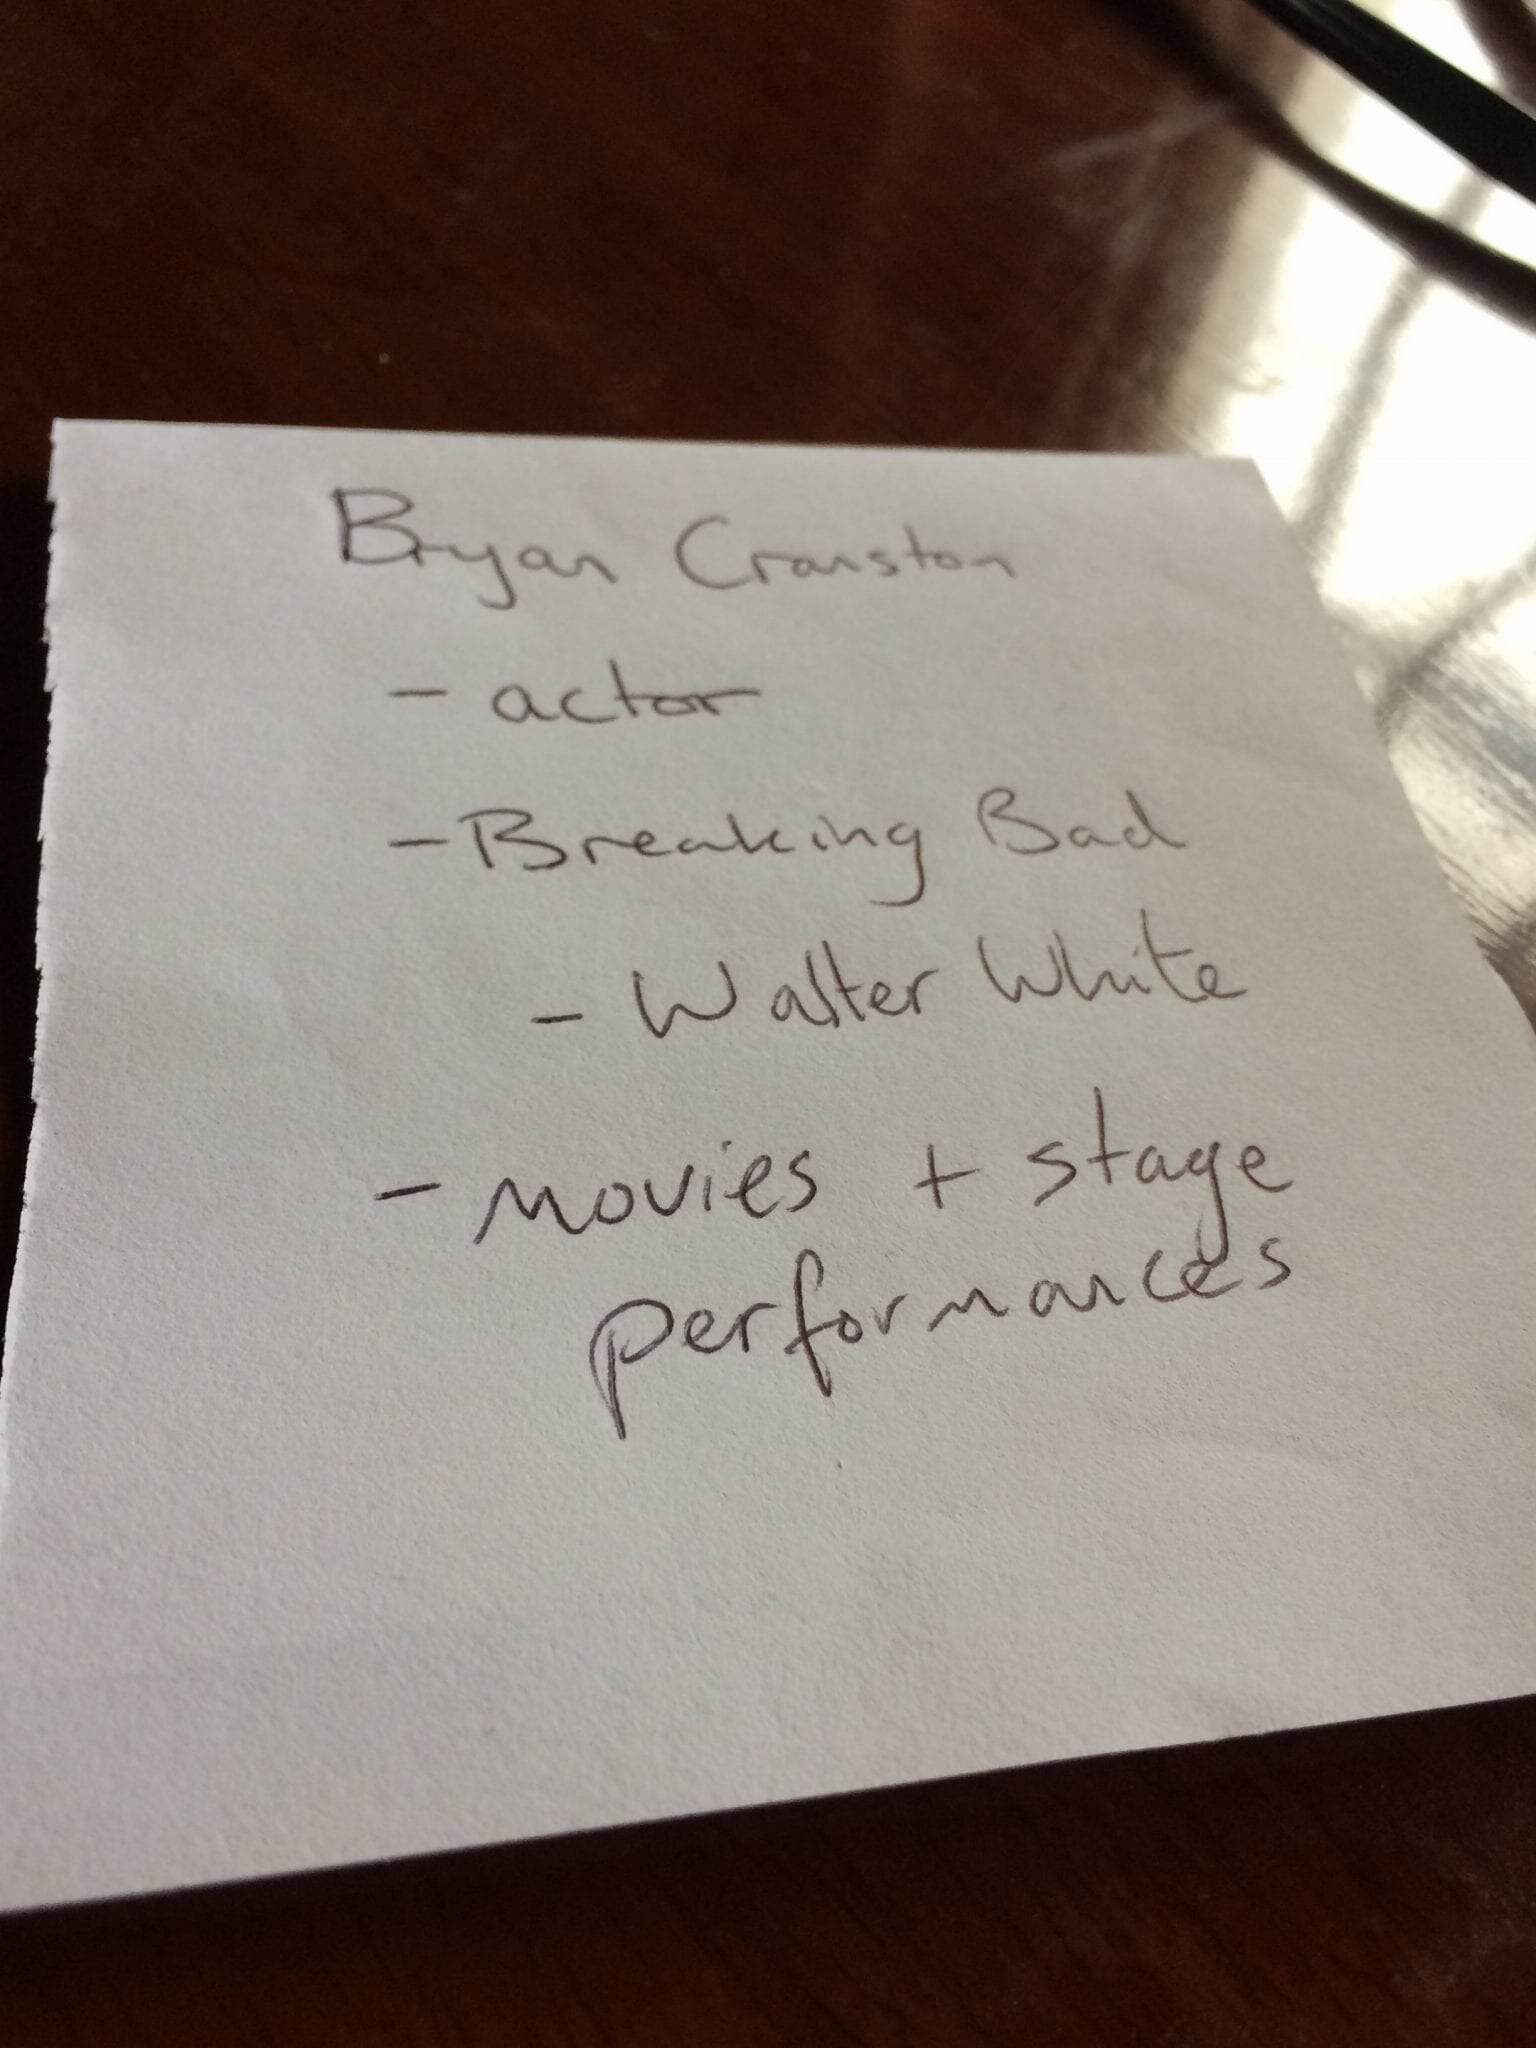 Bryan Cranston
- actor
- Breaking Bad
- Walter White
- movies + stage
performances